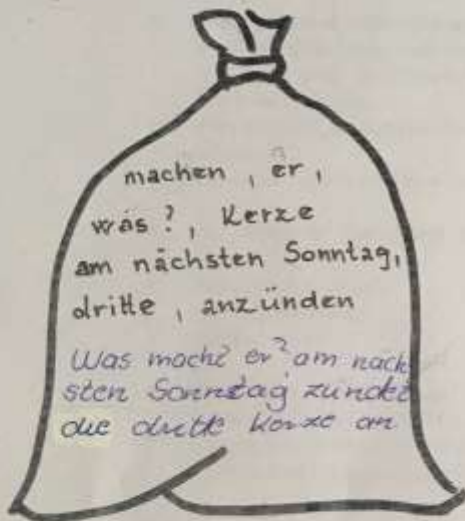 machen, er,
was?, Kerze
am nächsten Sonntag,
dritte, anzünden
Was macht er? am näch
sten Sonntag zündet
die dritte Kerze an